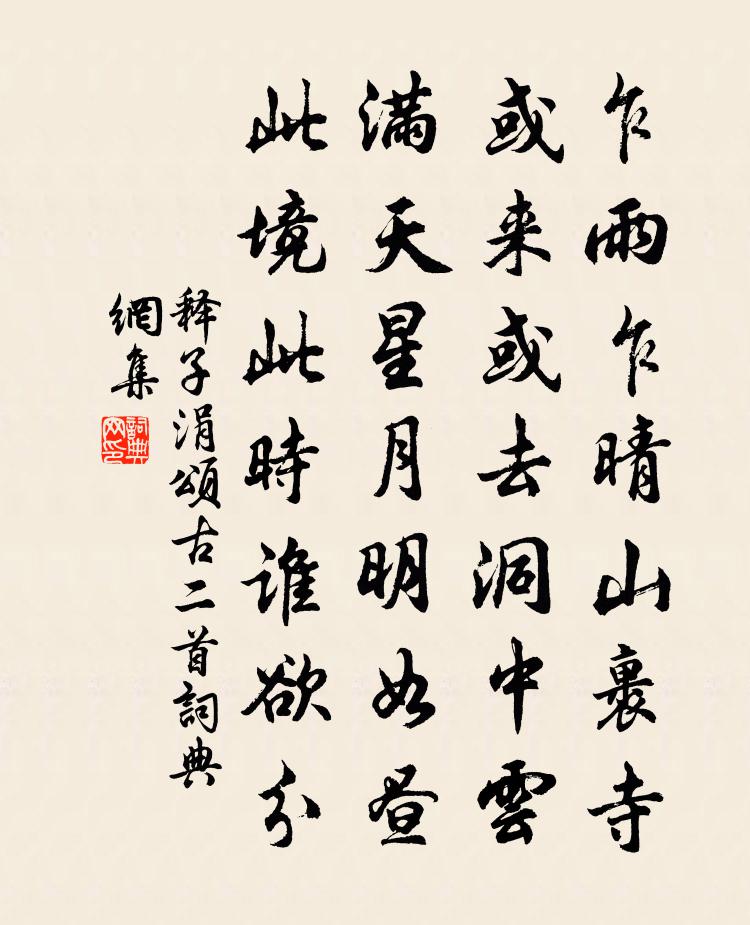 乍雨乍晴山裏寺
或来或去洞中雲
滿天星月明如昼
此境此時誰欲分
释子涓頌古二首詞典
網集
詞典
网印